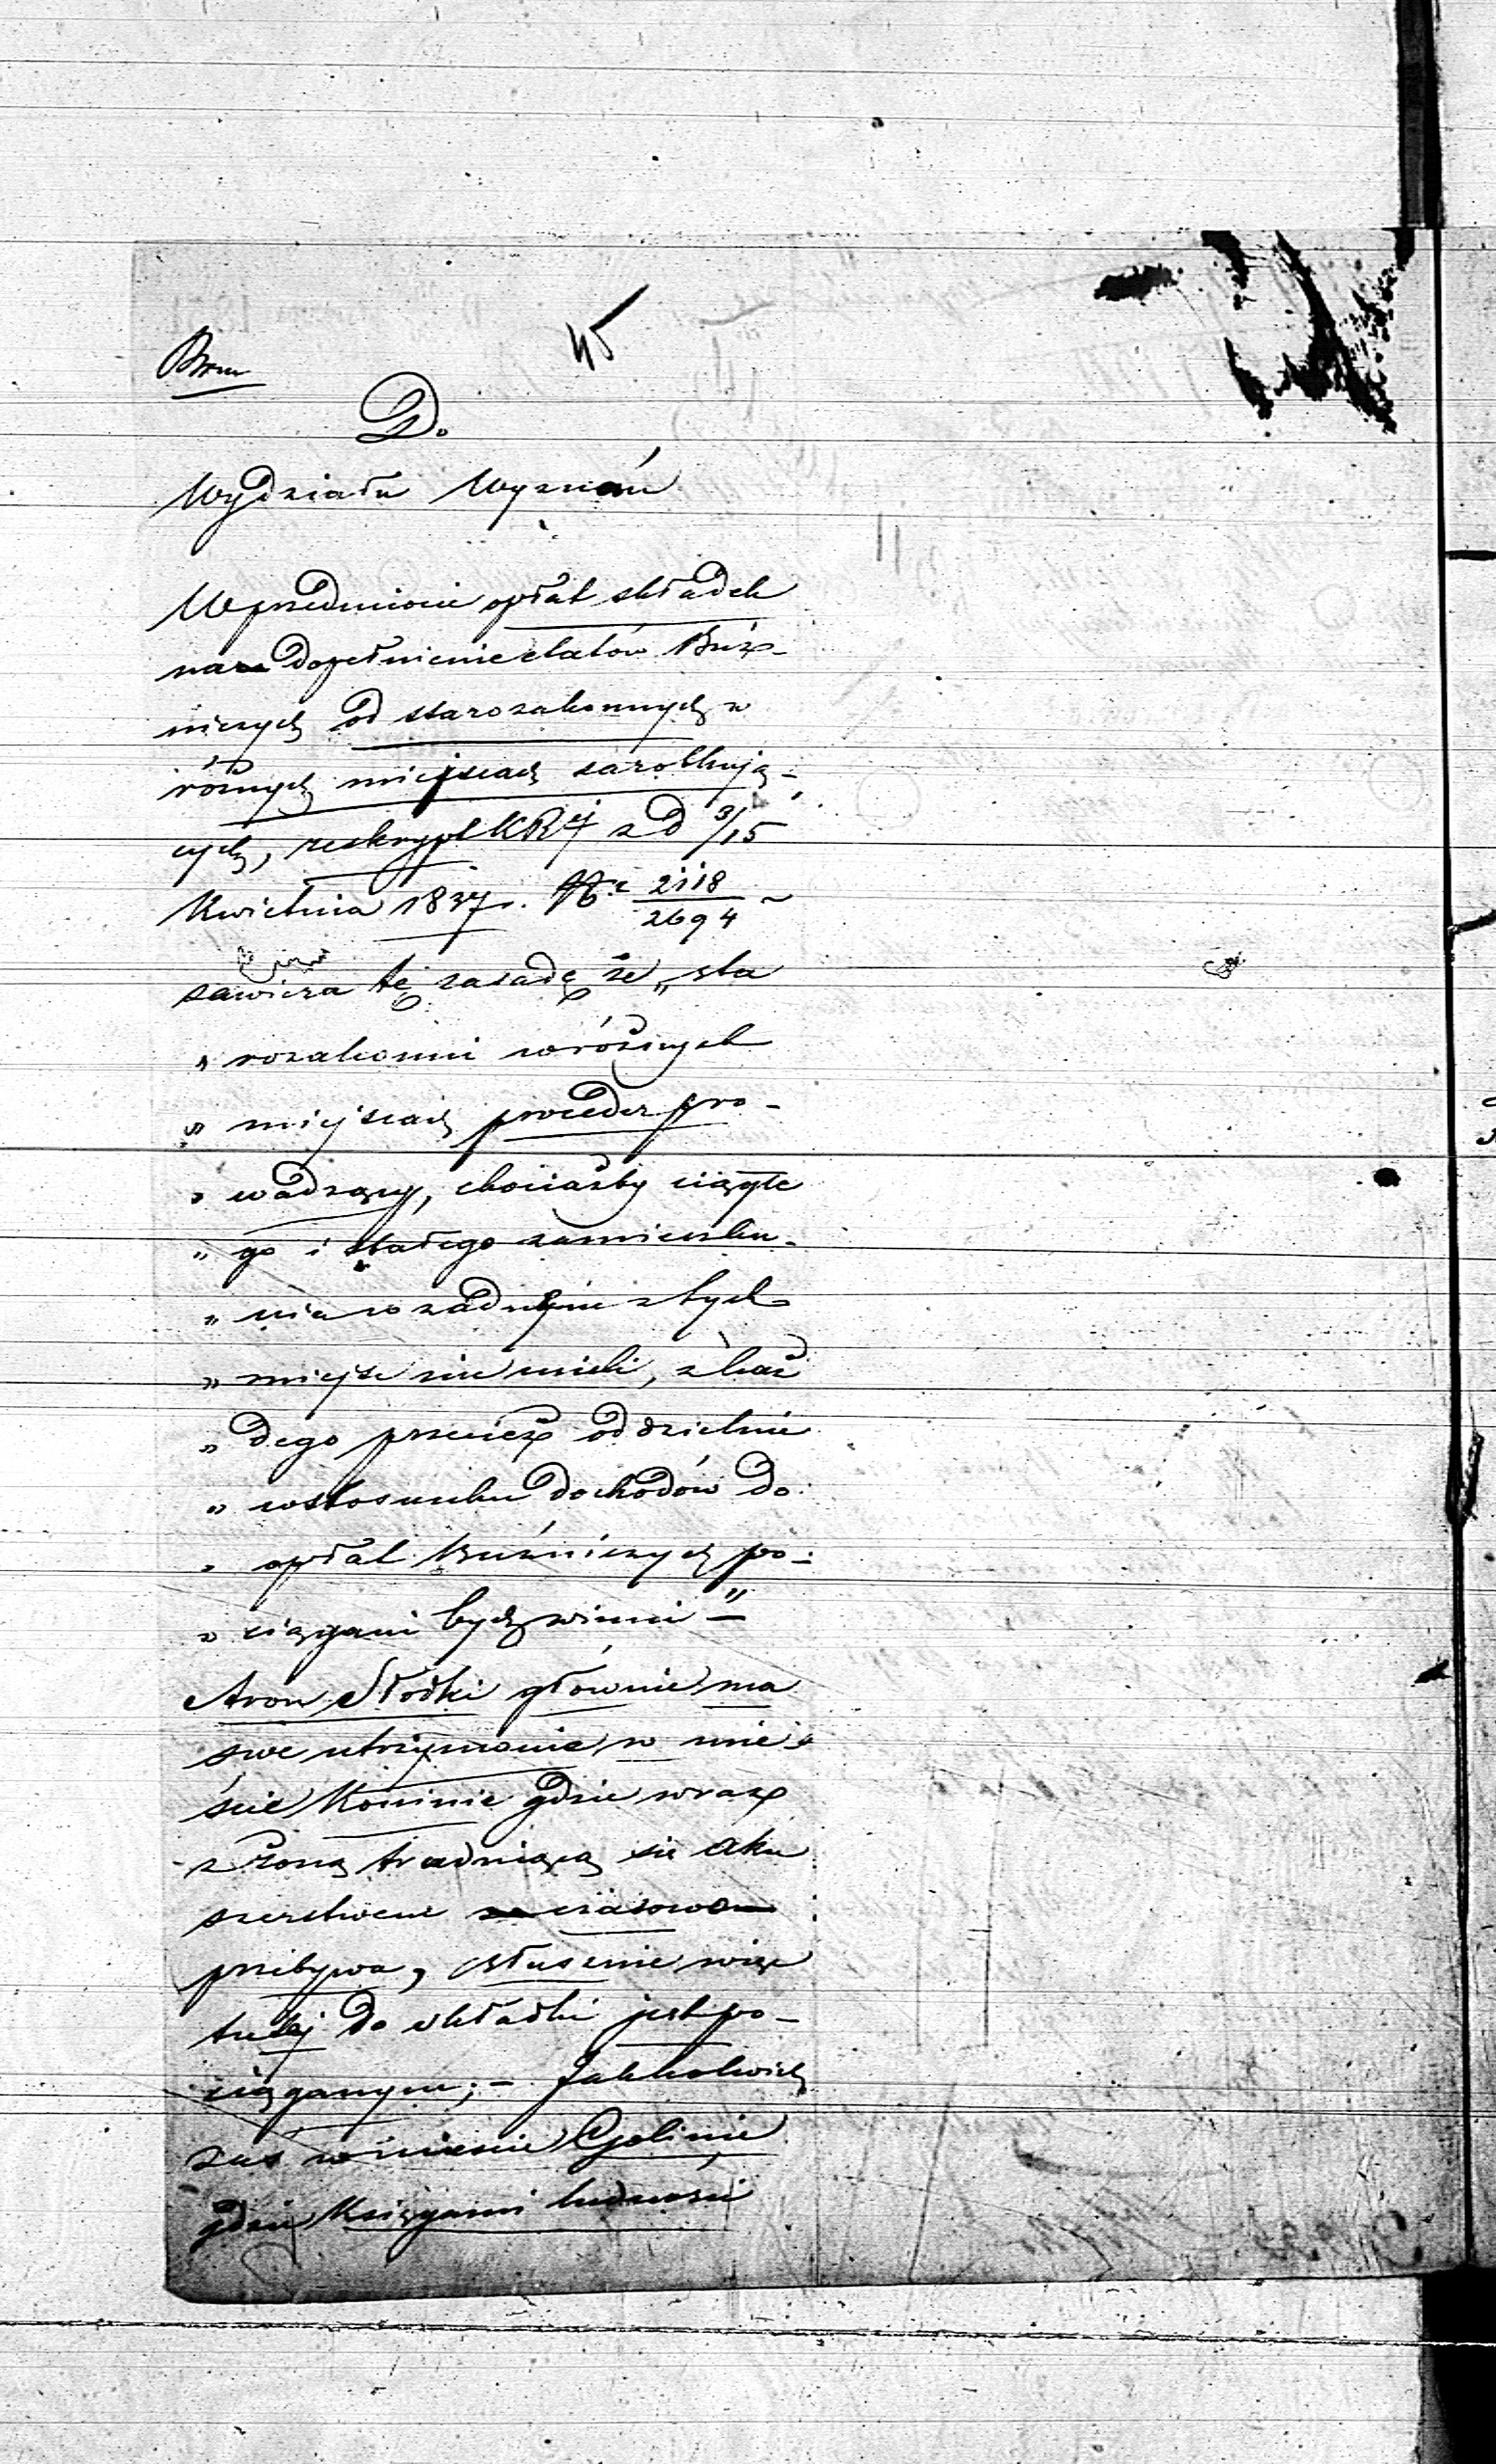 45
Do
Wydziału Wyznań
W przedmiocie opłat składek
na dopełnienie etatów Buż-
niczych od starozakonnych w
różnych miejscach zarobkują-
cych, reskrypt KRSej z d 3/15
Kwietnia 1837 r. No 2118/2694
zawiera tę zasadę że „sta
„rozakonni w różnych
„miejscach proceder pro-
„wadzący, chociażby ciągłe
„go i stałego zamieszka-
„nia w żadnym z tych
„miejsc nie mieli, z każ
„dego przecież oddzielnie
„w stosunku dochodów do
„opłat bużniczych po-
„ciągani bydź winni"—
Aron Słodki głównie ma
swe utrzymanie w mie-
ście Koninie gdzie wraz
z żoną trudniącą się aku
szerstwem czasowo
przebywa, słusznie więc
tutaj do składki jest po-
ciąganym; — Jakkolwiek
zaś w mieście Golinie
gdzie Księgami ludności